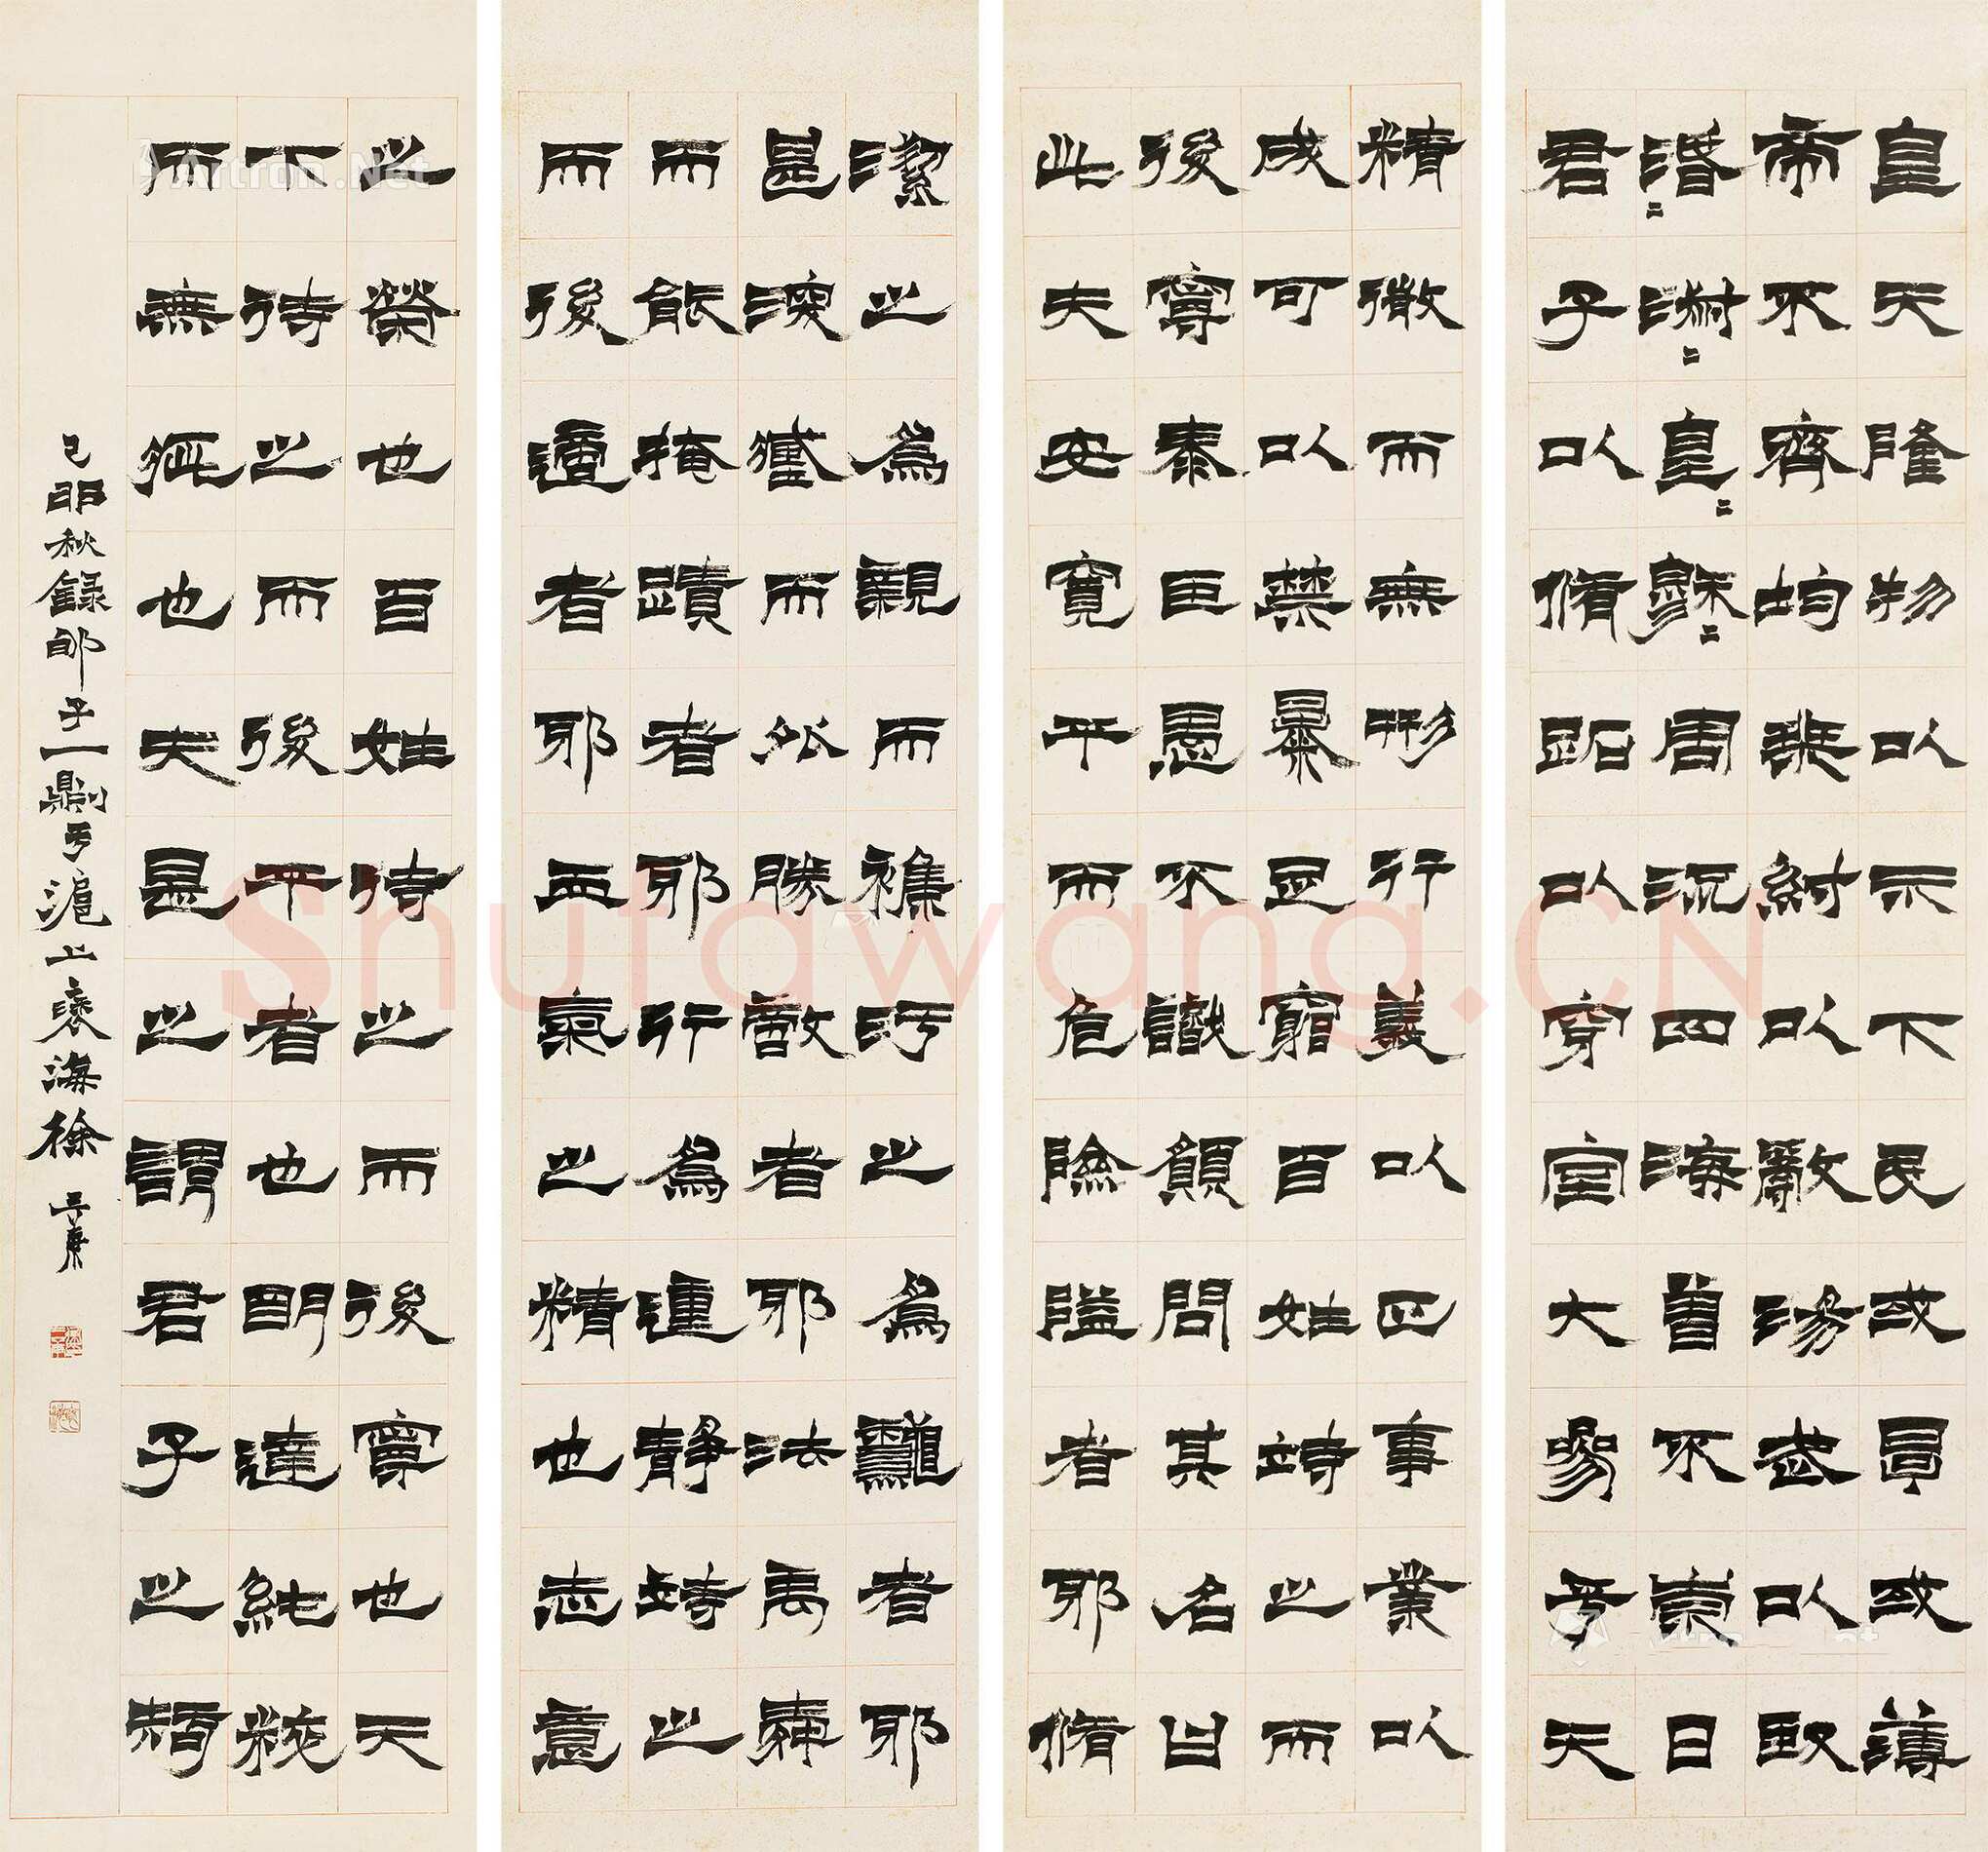 皇天隆物以示下民或厚或薄
帝不齊均桀紂以亂湯武以臤
湣〻淑〻皇〻穆〻周流四海曾不崇日
君子以脩跖以穿室大參乎天
精微而無形行義以正事業以
成可以禁暴足窮百姓待之而
後寧泰臣愚不識願問其名曰
此夫安寬平而危險隘者耶脩
潔之為親而襍汙之為者耶
甚深藏而外勝敵者耶法禹舜
而能掩蹟者耶行為動靜待之
而後適者耶血氣之精也志意
之榮也百姓待之而後寧也天
下待之而後平者也明達純粹
而無疵也夫是之謂君子之知
己卯秋錄郇子一則于滬上褎海徐三庚
Shufawang.CN
Artron.Net